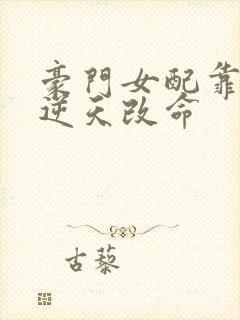 豪門女配靠
逆天改命
古藜